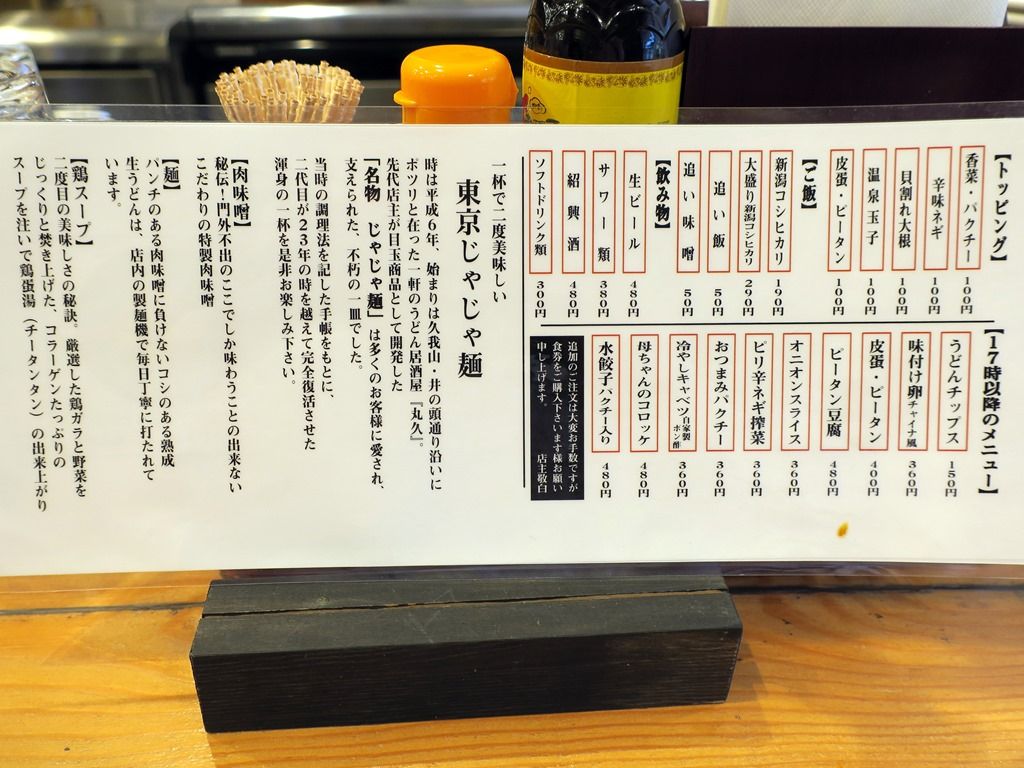 【トッピング】
香菜・パクチー 100円
辛味ネギ 100円
貝割れ大根 100円
温泉玉子 100円
皮蛋・ピータン 100円
【ご飯】
新潟コシヒカリ 190円
大盛り新潟コシヒカリ 290円
追い飯 50円
追い味噌 50円
【飲み物】
生ビール 480円
サワー類 380円
紹興酒 480円
ソフトドリンク類 300円
【17時以降のメニュー】
うどんチップス 150円
味付け卵チャイナ風 360円
皮蛋・ピータン 400円
ピータン豆腐 480円
オニオンスライス 360円
ピリ辛ネギ搾菜 360円
おつまみパクチー 360円
冷やしキャベツ自家製ポン酢 360円
母ちゃんのコロッケ 480円
水餃子パクチー入り 480円
追加のご注文は大変お手数ですが
食券をご購入下さいます様お願い
申し上げます。 店主敬白
一杯で二度美味しい
東京じゃじゃ麺
時は平成6年、始まりは久我山・井の頭通り沿いに
ポツリと在った一軒のうどん居酒屋『丸久』。
先代店主が目玉商品として開発した
「名物 じゃじゃ麺」は多くのお客様に愛され、
支えられた、不朽の一皿でした。
当時の調理法を記した手帳をもとに、
二代目が23年の時を越えて完全復活させた
渾身の一杯を是非お楽しみ下さい。
【肉味噌】
秘伝!門外不出のここでしか味わうことの出来ない
こだわりの特製肉味噌
【麺】
パンチのある肉味噌に負けないコシのある熟成
生うどんは、店内の製麺機で毎日丁寧に打たれて
います。
【鶏スープ】
二度目の美味しさの秘訣。厳選した鶏ガラと野菜を
じっくりと焚き上げた、コラーゲンたっぷりの
スープを注いで鶏蛋湯(チータンタン)の出来上がり